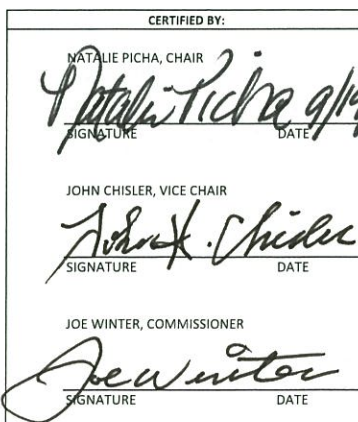 CERTIFIED BY:
NATALIE PICHA, CHAIR
Natalie Picha 9/19
SIGNATURE DATE
JOHN CHISLER, VICE CHAIR
John K. Chisler
SIGNATURE DATE
JOE WINTER, COMMISSIONER
Joe Winter
SIGNATURE DATE